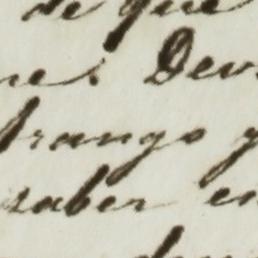 de que
nes Dev
frango y
saber en